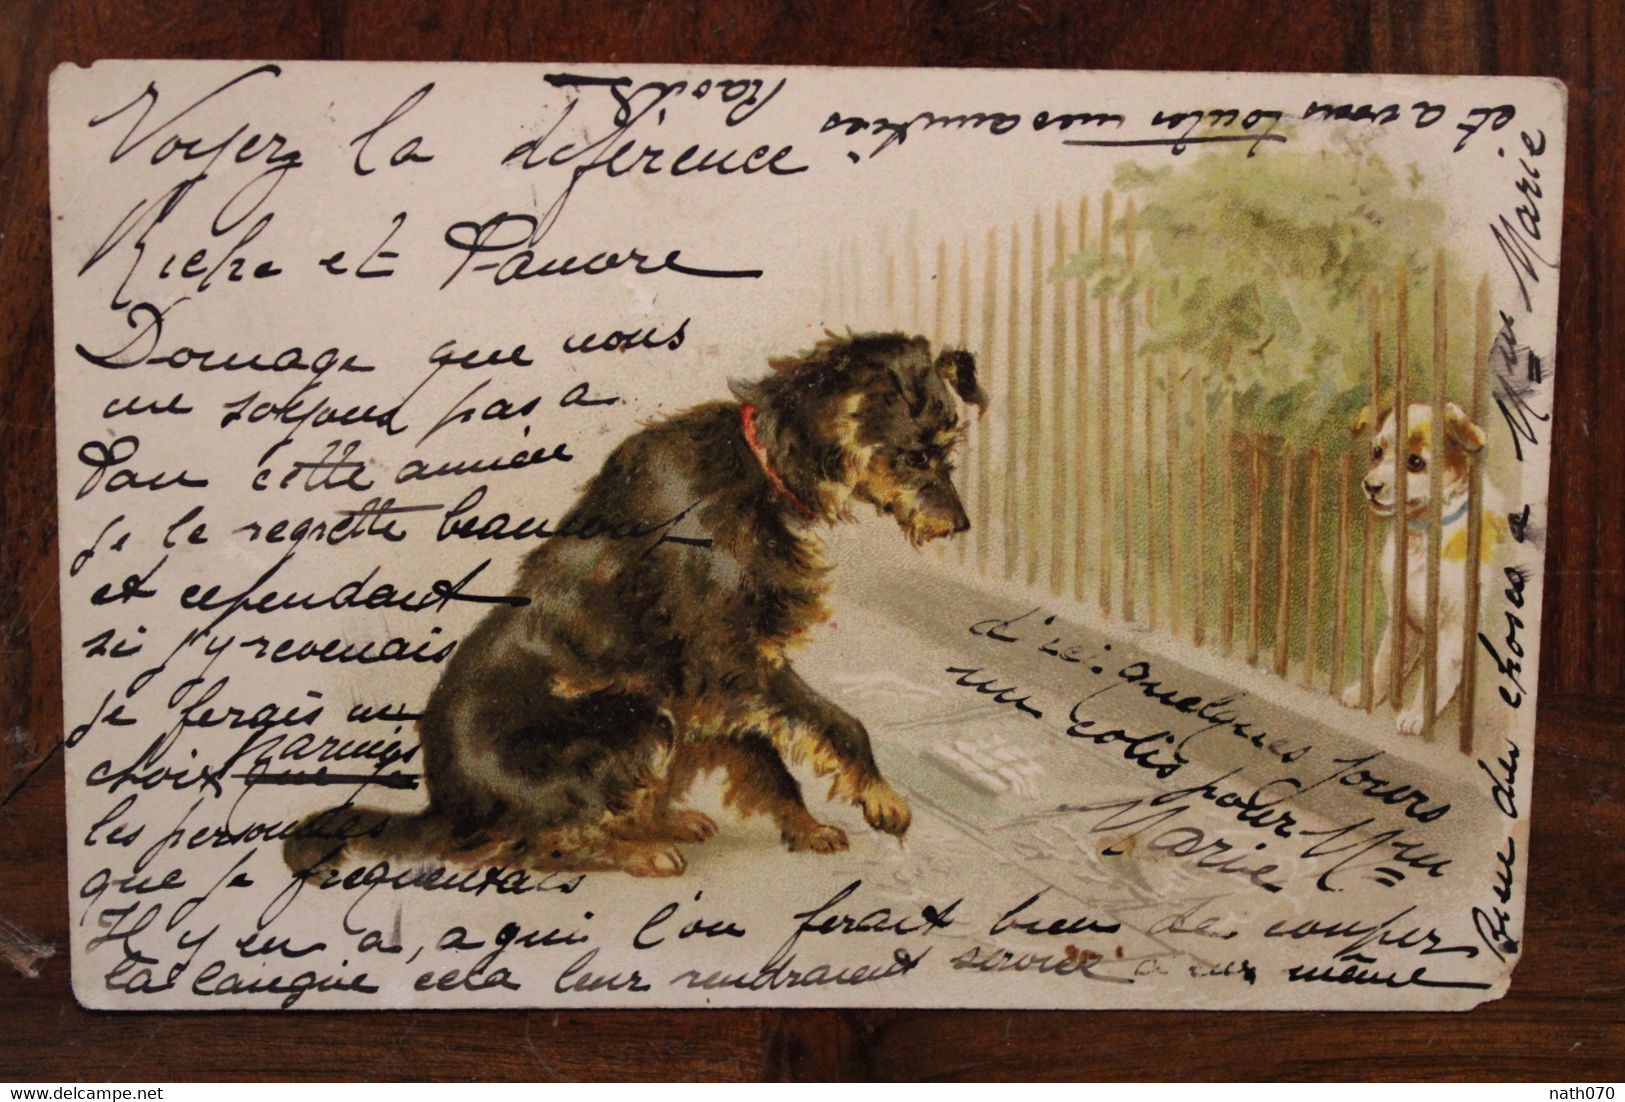 Voyez la diférence
Riche et Pauvre
Domage que nous
ne soyons pas a
Pau cette année
je le regrette beaucoup
et cependant
si j'y revenais
je ferais un
choix parmis
les personnes
que je frequentais
Il y en a, a qui l'on ferait bien de couper
la langue cela leur rendraient service a eux même
d'ici quelques jours
un colis pour Mme
Marie
Bien des choses a Mme Marie
et a vous toutes mes amitiés
nath070